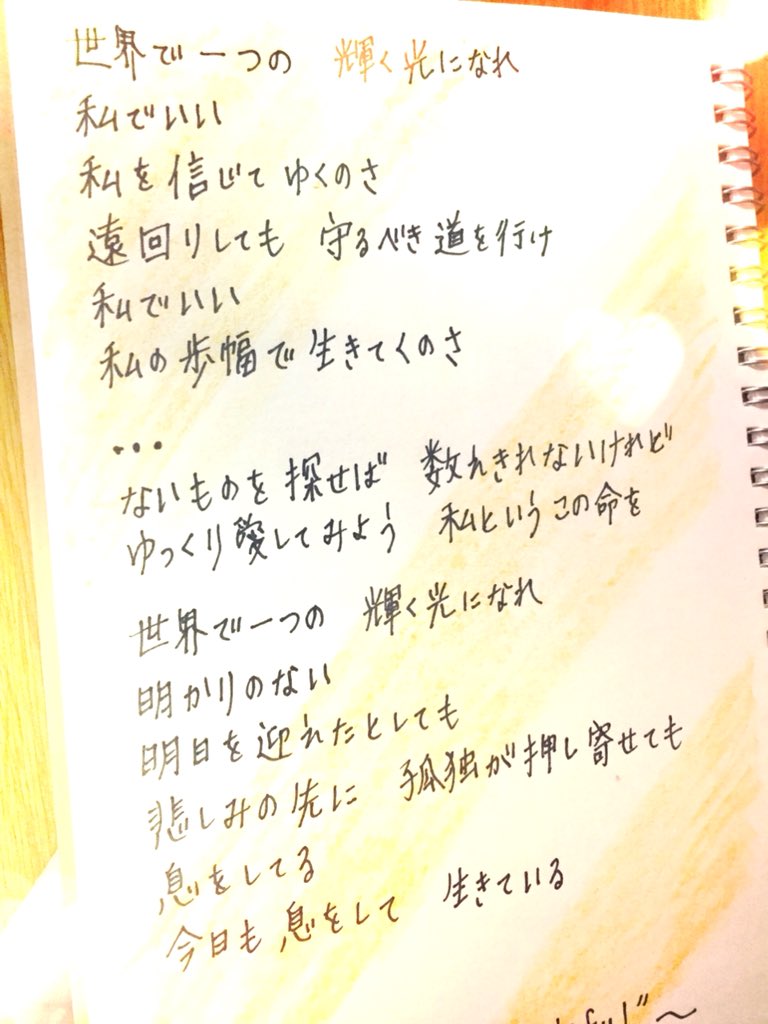 世界で一つの 輝く光になれ
私でいい
私を信じてゆくのさ
遠回りしても 守るべき道を行け
私でいい
私の歩幅で生きてくのさ
...
ないものを探せば 数えきれないけれど
ゆっくり愛してみよう 私というこの命を
世界で一つの 輝く光になれ
明かりのない
明日を迎えたとしても
悲しみの先に 孤独が押し寄せても
息をしてる
今日も息をして 生きている